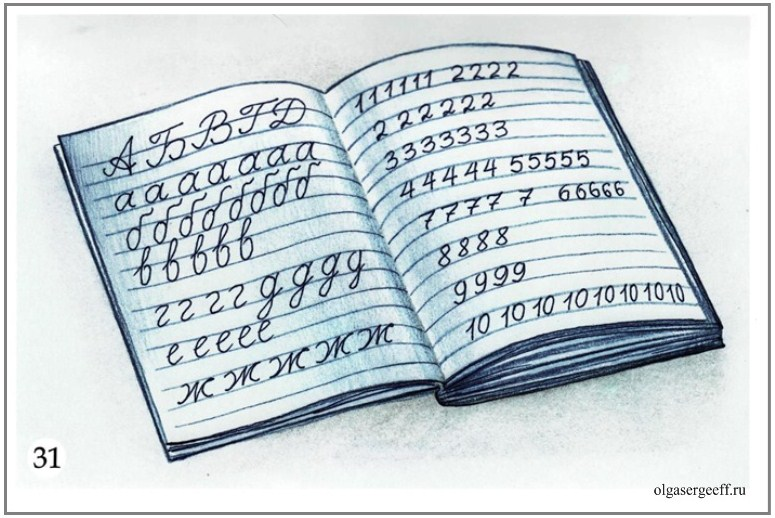 А Б В Г Д
а а а а а а а
б б б б б б б б
в в в в в
г г г г д д д д
е е е е е
ж ж ж ж ж ж
111111 2222
2 2 2 2 2 2
3333333
44444 55555
7777 7 66666
8888
9999
10 10 10 10 10 10 10 10
31
olgasergeeff.ru